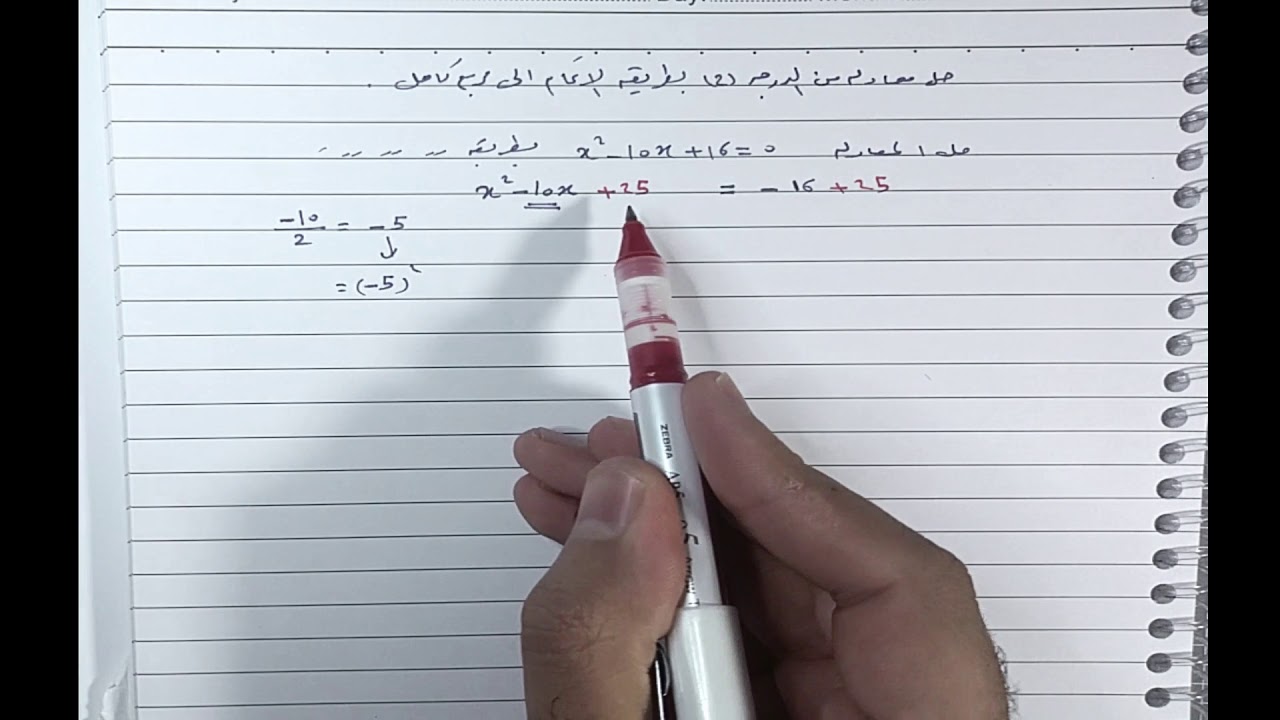 حل معادلة من الدرجة (2) بطريقة الإتمام الى مربع كامل .
حل المعادلة x² - 10x + 16 = 0 بطريقة
x² - 10x + 25 = - 16 + 25
-10/2 = - 5
↓
= (-5)²
ZEBRA